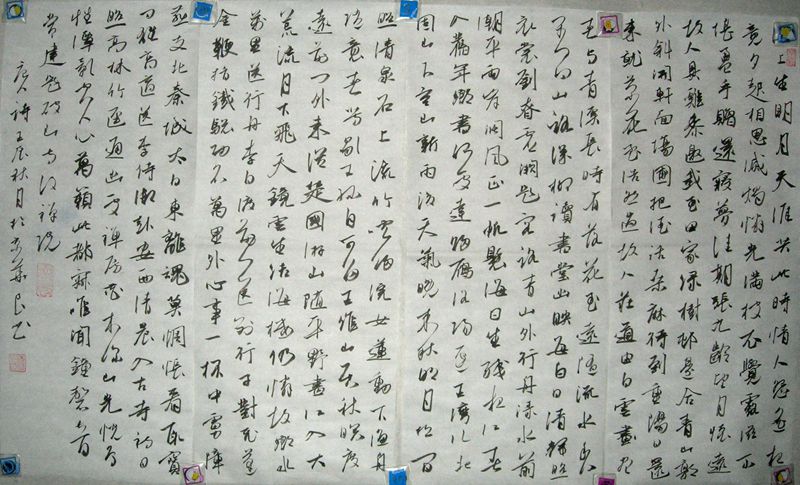 上生明月天涯共此時情人怨遙夜
竟夕起相思滅燭憐光滿披衣覺露滋不
堪盈手贈還寢夢佳期張九齡望月懷遠
故人具雞黍邀我至田家綠樹村邊合青山郭
外斜開軒面場圃把酒話桑麻待到重陽日還
來就菊花孟浩然過故人莊道由白雲盡春
與青溪長時有落花至遠隨流水香
閑門向山路深柳讀書堂幽映每白日清輝照
衣裳劉昚虛闕題客路青山外行舟綠水前
潮平兩岸闊風正一帆懸海日生殘夜江春
入舊年鄉書何處達歸雁洛陽邊王灣次北
固山下空山新雨後天氣晚來秋明月松間
照清泉石上流竹喧歸浣女蓮動下漁舟
隨意春芳歇王孫自可留王維山居秋暝渡
遠荊門外來從楚國游山隨平野盡江入大
荒流月下飛天鏡雲生結海樓仍憐故鄉水
萬里送行舟李白渡荊門送別行子對飛蓬
金鞭指鐵驄功名萬里外心事一杯中虜障
燕支北秦城太白東離魂莫惆悵看取寶
刀雄高適送李侍御赴安西清晨入古寺初日
照高林竹徑通幽處禪房花木深山光悅鳥
性潭影空人心萬籟此都寂唯聞鐘磬音
常建題破山寺後禪院
唐人詩壬辰秋月於